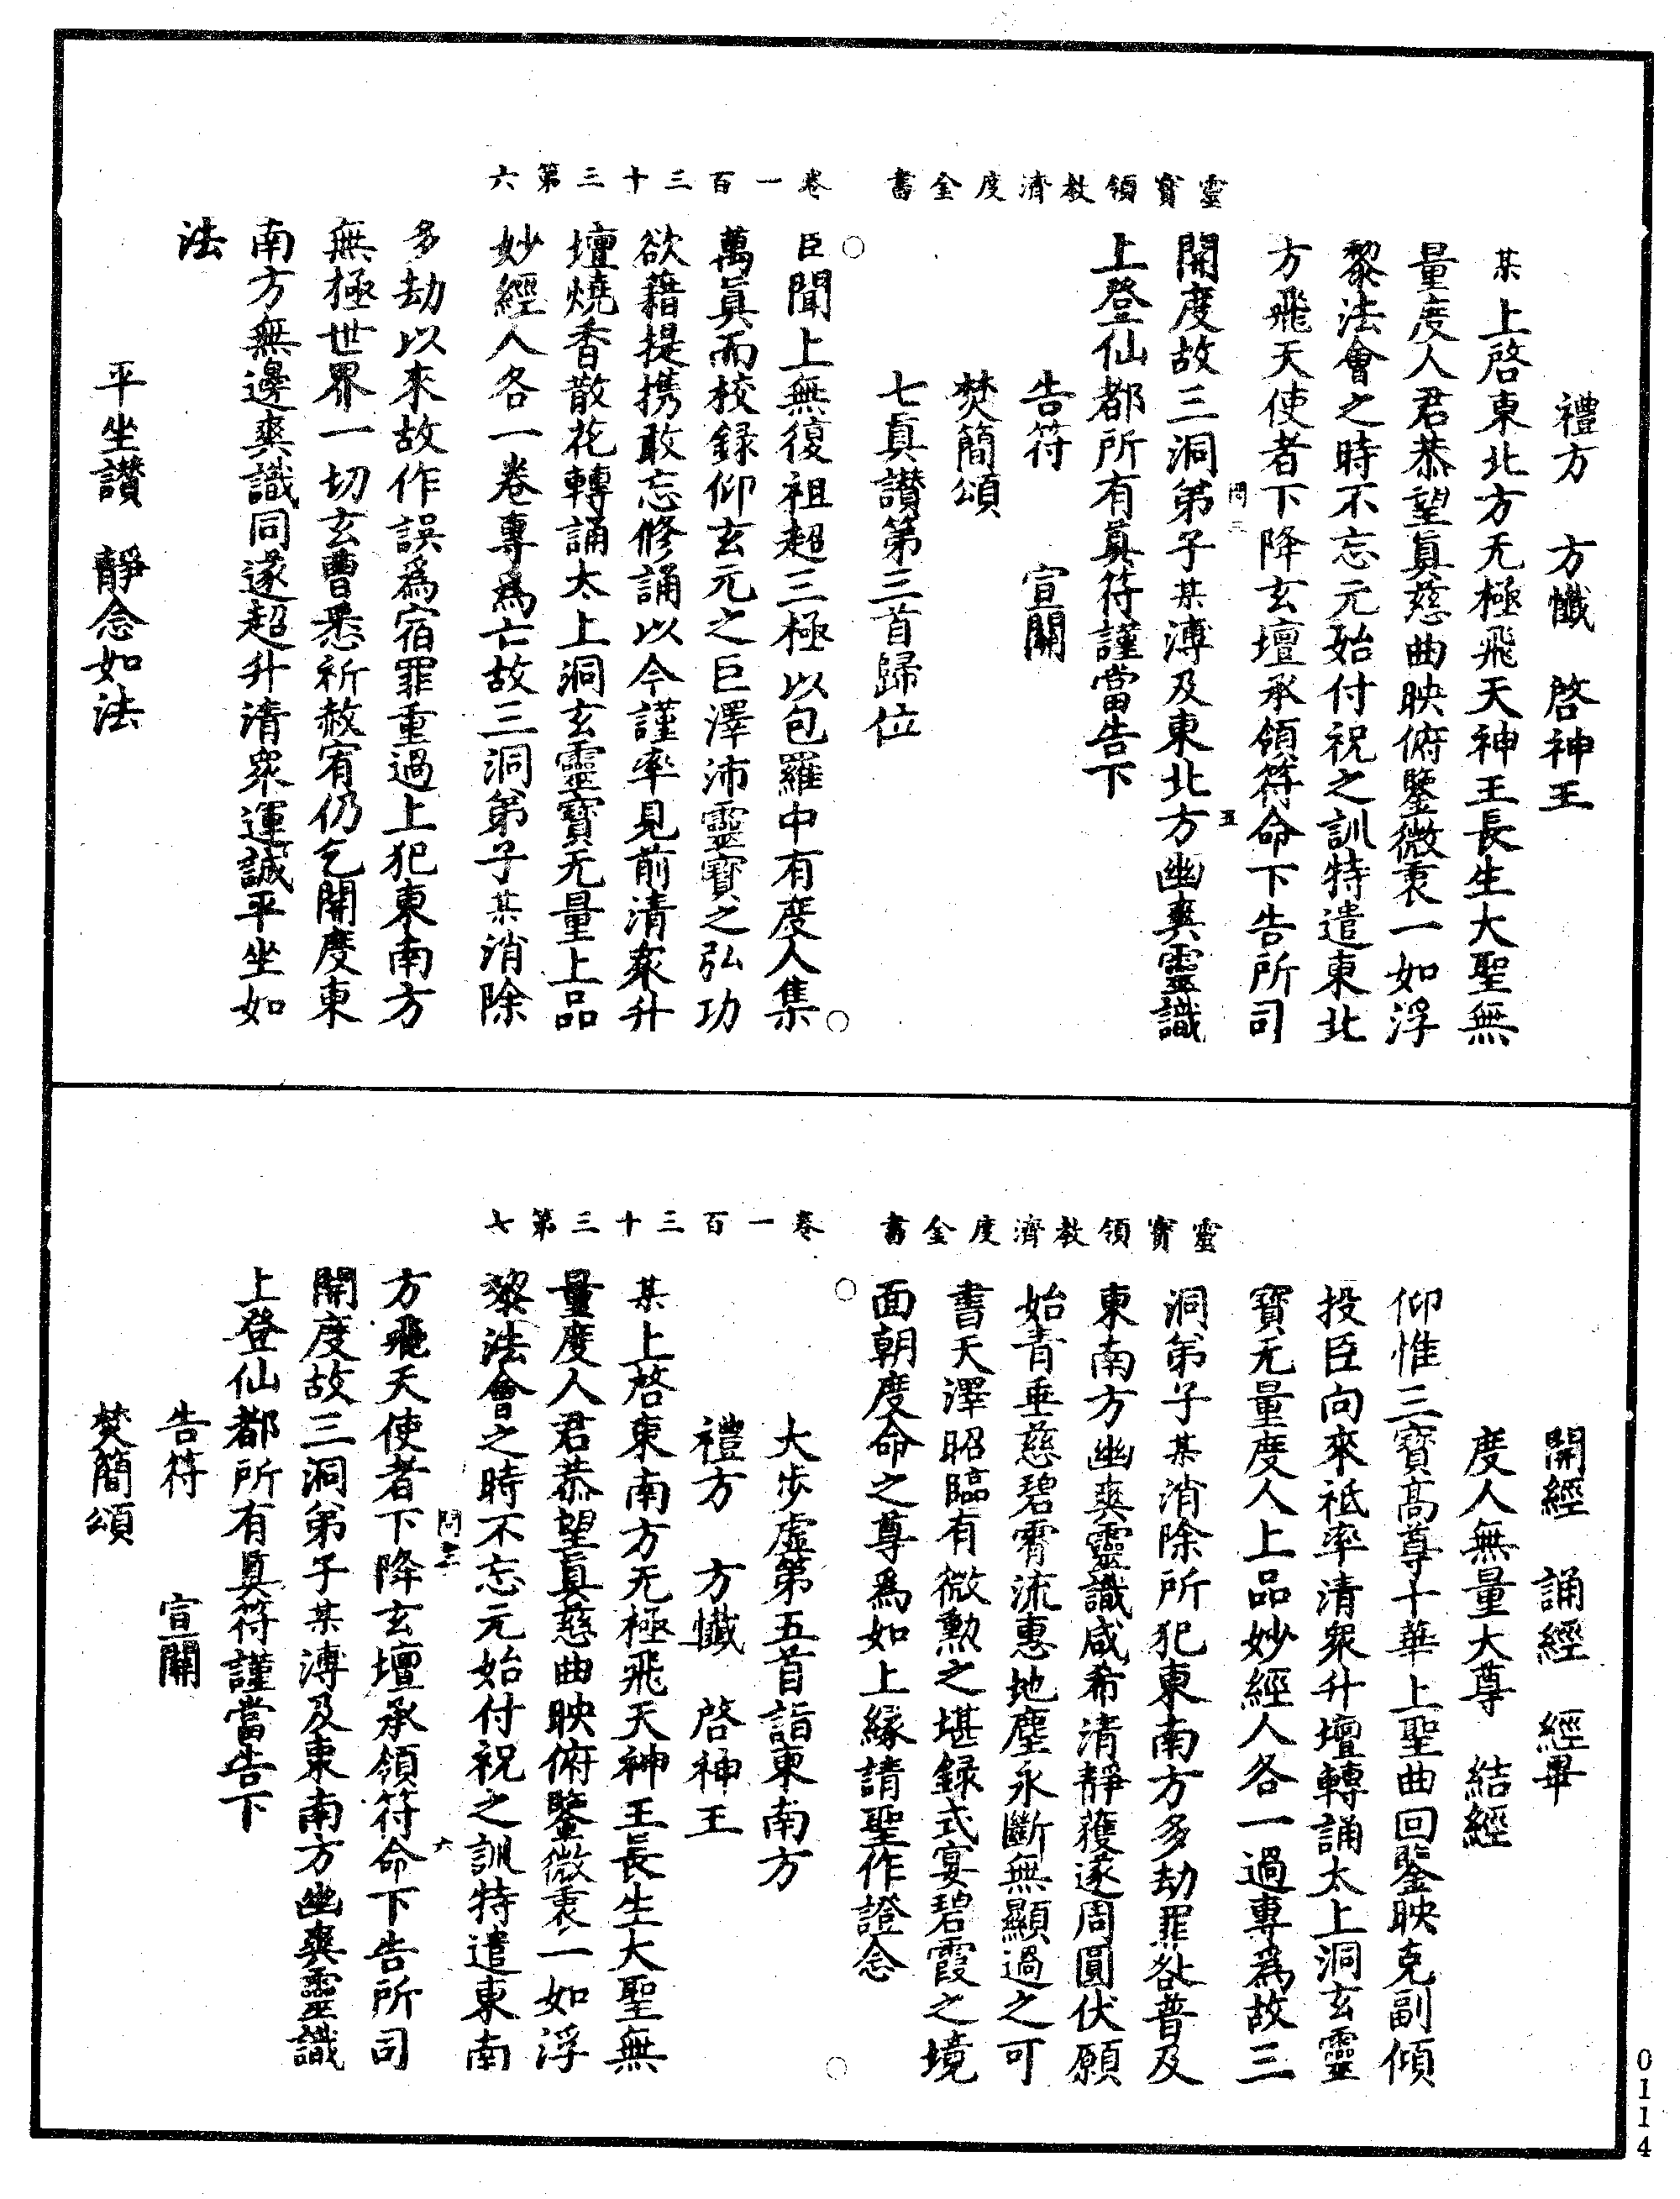 禮方　方懺　啓神王
某上啓東北方无極飛天神王長生大聖無
量度人君恭望眞慈曲映俯鑒微衷一如浮
黎法會之時不忘元始付祝之訓特遣東北
方飛天使者下降玄壇承領符命下告所司
問三　五
開度故三洞弟子某溥及東北方幽爽靈識
上登仙都所有眞符謹當告下
告符　宣關
焚簡頌
七眞讃第三首歸位
靈寶領教濟度金書
卷一百三十三第六
臣聞上無復祖超三極以包羅中有度人集
萬眞而校録仰玄元之巨澤沛靈寶之弘功
欲藉提携敢忘修誦以今謹率見前清衆升
壇燒香散花轉誦太上洞玄靈寶无量上品
妙經人各一卷專爲亡故三洞弟子某消除
多劫以來故作誤爲宿罪重過上犯東南方
無極世界一切玄曹悉祈赦宥仍乞開度東
南方無邊爽識同遂超升清衆運誠平坐如
法
平坐讃　靜念如法
開經　誦經　經畢
度人無量大尊　結經
仰惟三寶高尊十華上聖曲回鑒映克副傾
投臣向來祗率清衆升壇轉誦太上洞玄靈
寶无量度人上品妙經人各一過專為故三
洞弟子某消除所犯東南方多劫罪咎普及
東南方幽爽靈識咸希清靜獲遂周圓伏願
始青垂慈碧霄流惠地塵永斷無顯過之可
書天澤昭臨有微勲之堪録式宴碧霞之境
面朝度命之尊爲如上縁請聖作證念
靈寶領教濟度金書
卷一百三十三第七
大步虛第五首詣東南方
禮方　方懺　啓神王
某上啓東南方无極飛天神王長生大聖無
量度人君恭望眞慈曲映俯鑒微衷一如浮
黎法會之時不忘元始付祝之訓特遣東南
問三　六
方飛天使者下降玄壇承領符命下告所司
開度故三洞弟子某溥及東南方幽爽靈識
上登仙都所有眞符謹當告下
告符　宣關
焚簡頌
0114